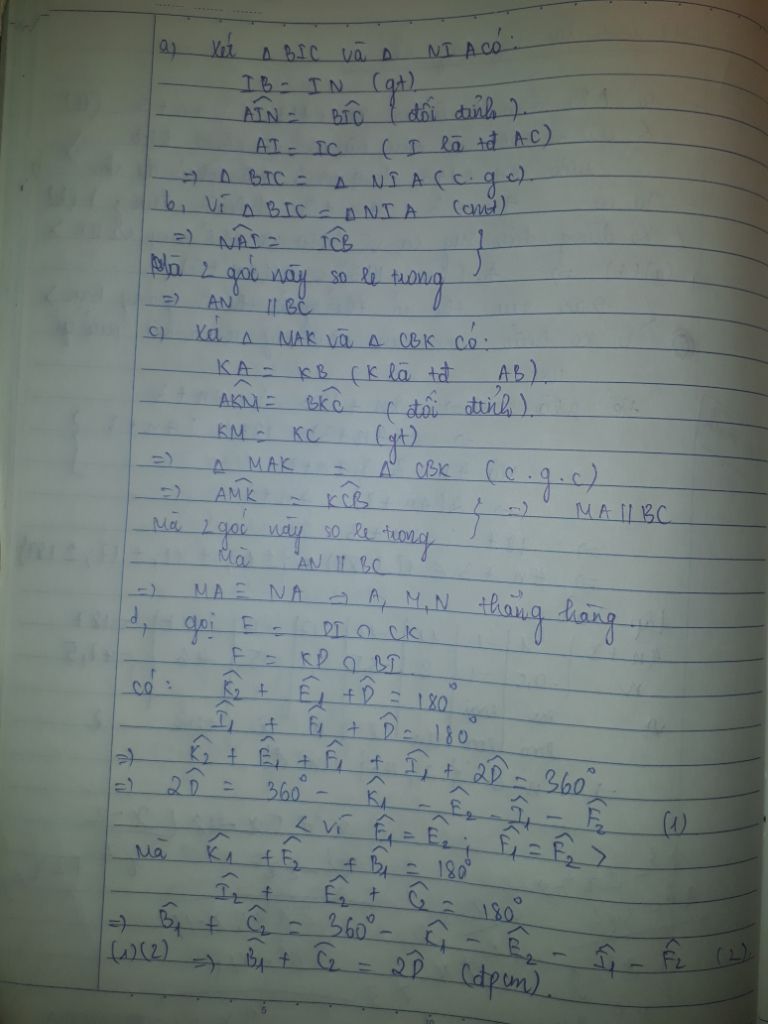 a) Xét Δ BIC và Δ NIA có:
IB = IN (gt)
AIN^ = BIC^ (đối đỉnh).
AI = IC (I là tđ AC)
=> Δ BIC = Δ NIA (c.g.c).
b, Vì Δ BIC = Δ NIA (cmt)
=> NAI^ = ICB^ }
Mà 2 góc này so le trong
=> AN // BC
c) Xét Δ MAK và Δ CBK có:
KA = KB (K là tđ AB).
AKM^ = BKC^ (đối đỉnh).
KM = KC (gt)
=> Δ MAK = Δ CBK (c.g.c)
=> AMK^ = KCB^ } => MA // BC
Mà 2 góc này so le trong
Mà AN // BC
=> MA ≡ NA => A, M, N thẳng hàng.
d, gọi E = DI ∩ CK
F = KD ∩ BI
có: K̂2 + Ê1 + D̂ = 180°
Î1 + F̂1 + D̂ = 180°
=> K̂2 + Ê1 + F̂1 + Î1 + 2D̂ = 360°
=> 2D̂ = 360° - K̂1 - Ê2 - Î1 - F̂2 (1)
< vì Ê1 = Ê2; F̂1 = F̂2 >
Mà K̂1 + F̂2 + B̂1 = 180°
Î2 + Ê2 + Ĉ2 = 180°
=> B̂1 + Ĉ2 = 360° - K̂1 - Ê2 - Î1 - F̂2 (2).
(1)(2) => B̂1 + Ĉ2 = 2D̂ (đpcm).